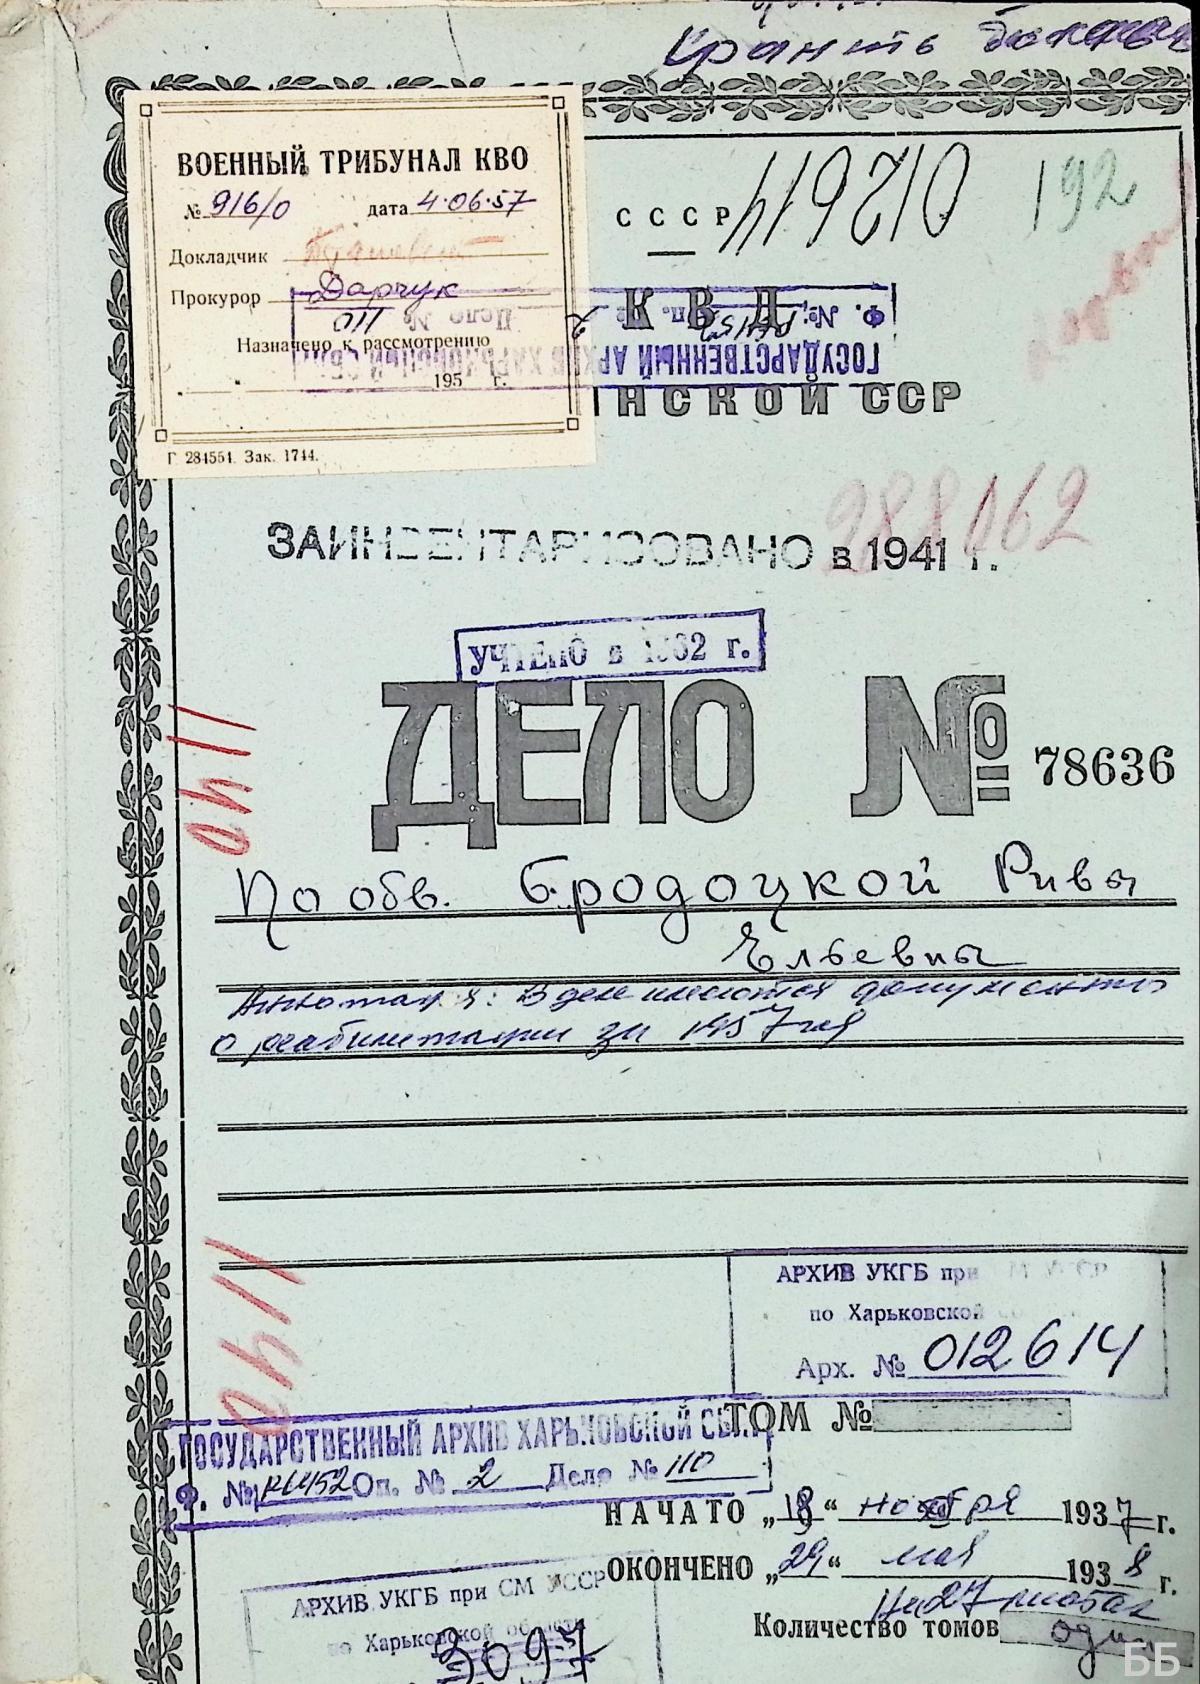 Хранить
ВОЕННЫЙ ТРИБУНАЛ КВО
№ 916/0 дата 4.06.57
Докладчик
Прокурор Дарчук
Назначено к рассмотрению
195 г.
Г 284554. Зак. 1744.
СССР
192
КВД
ГОСУДАРСТВЕННЫЙ АРХИВ ХАРЬКОВСКОЙ ОБЛ.
Ф. №
Оп. №
Дело № 011
НСКОЙ ССР
ЗАИНВЕНТАРИЗОВАНО в 1941 г.
988162
УЧТЕНО в 1962 г.
ДЕЛО № 78636
1140
По обв. Бродоцкой Ривы
Ельевны
Аннотация: В деле имеются документы
о реабилитации за 1957 год
1140
АРХИВ УКГБ при СМ УССР
по Харьковской области
Арх. № 012614
ТОМ №
ГОСУДАРСТВЕННЫЙ АРХИВ ХАРЬКОВСКОЙ ОБЛ.
Ф. № R6452 Оп. № 2 Дело № 110
НАЧАТО „18“ ноября 1937 г.
ОКОНЧЕНО „29“ мая 1938 г.
На 27 листах
Количество томов один
АРХИВ УКГБ при СМ УССР
по Харьковской области
3097
ББ